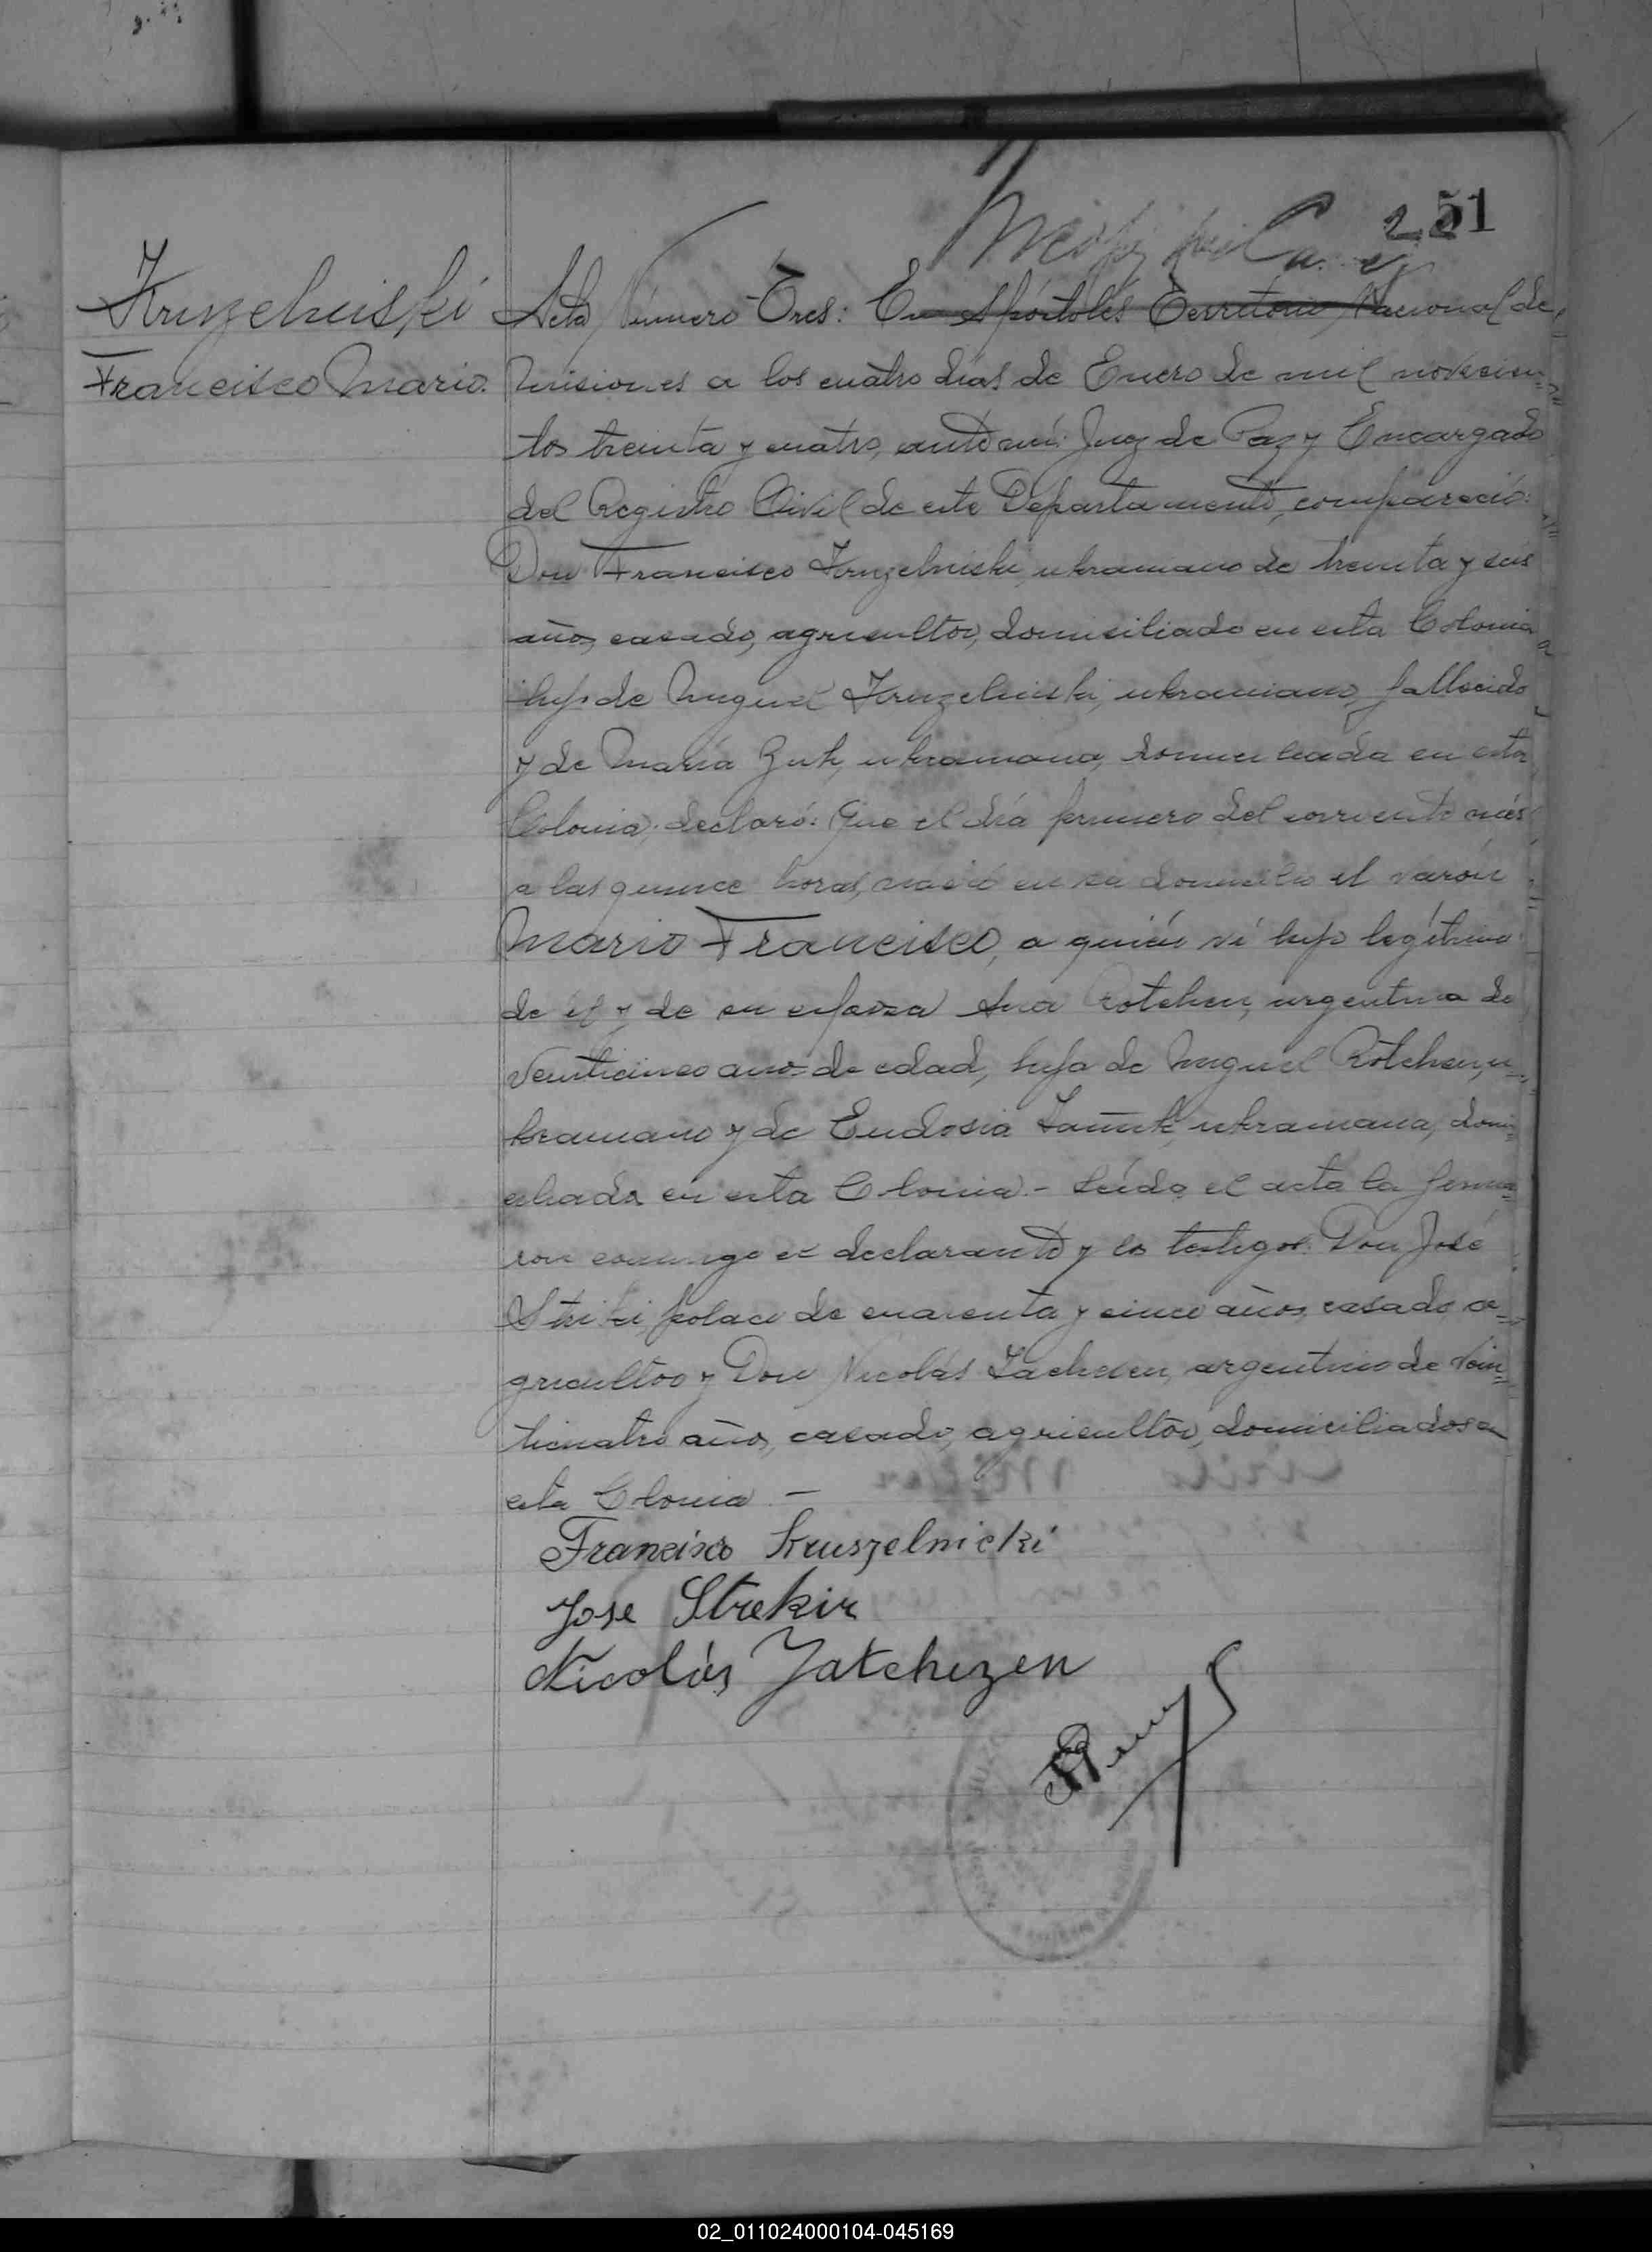 251
Kruzelniski
Francisco Mario.
Acta Número Tres: En Apóstoles Territorio Nacional de
Misiones a los cuatro días de Enero de mil novecien=
tos treinta y cuatro, ante mí: Juez de Paz y Encargado
del Registro Civil de este Departamento, compareció:
Don Francisco Kruzelniski, ukraniano de treinta y seis
años, casado, agricultor, domiciliado en esta Colonia
hijo de Miguel Kruzelniski, ukraniano, fallecido
y de María Zuk, ukraniana, domiciliada en esta
Colonia, declaró: Que el día primero del corriente mes
a las quince horas, nació en su domicilio el varón
Mario Francisco, a quién ví hijo legítimo
de él y de su esposa Ana Rotchen, argentina de
veinticinco años de edad, hija de Miguel Rotchen, u=
kraniano y de Eudosia ukraniana, domi=
ciliada en esta Colonia.- Leída el acta la firma=
ron conmigo el declarante y los testigos: Don José
Striki, polaco de cuarenta y cinco años, casado, a=
gricultor y Don Nicolás argentino de vein=
ticuatro años, casado, agricultor, domiciliados en
esta Colonia.-
Francisco Kruszelnicki
Jose Strekir
Nicolás Jatchezen
02_011024000104-045169